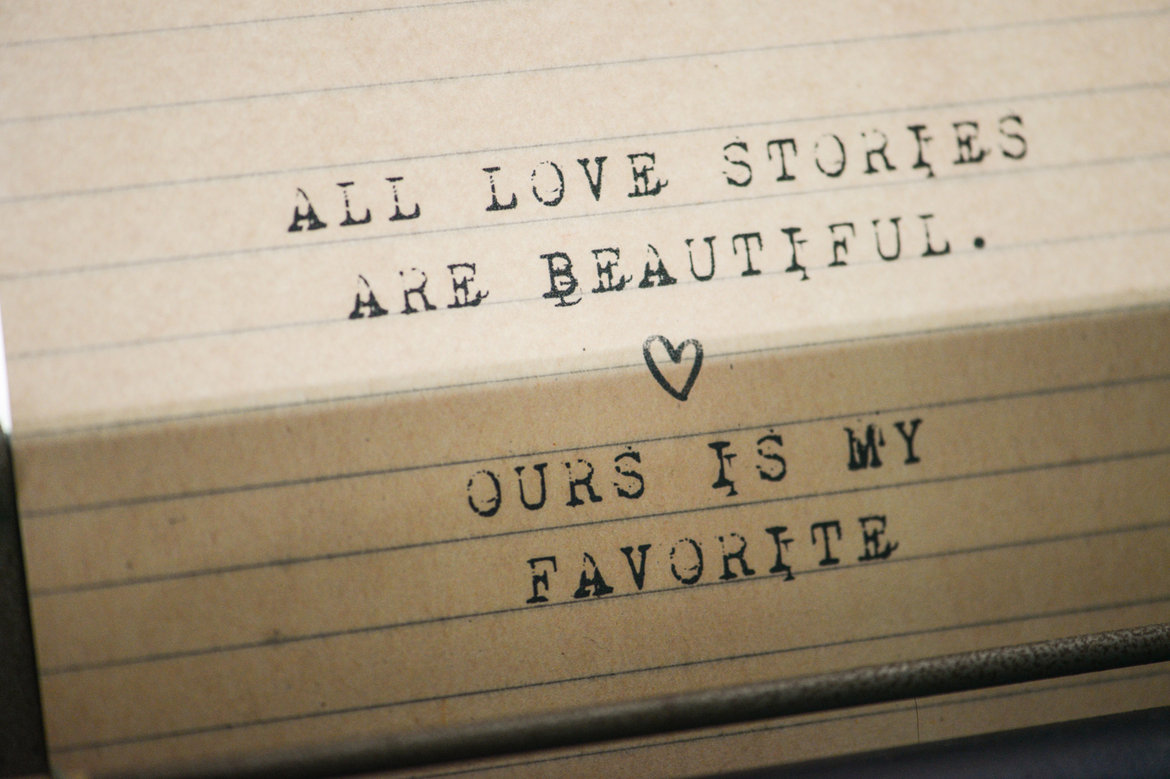 ALL LOVE STORIES
ARE BEAUTIFUL.
OURS IS MY
FAVORITE